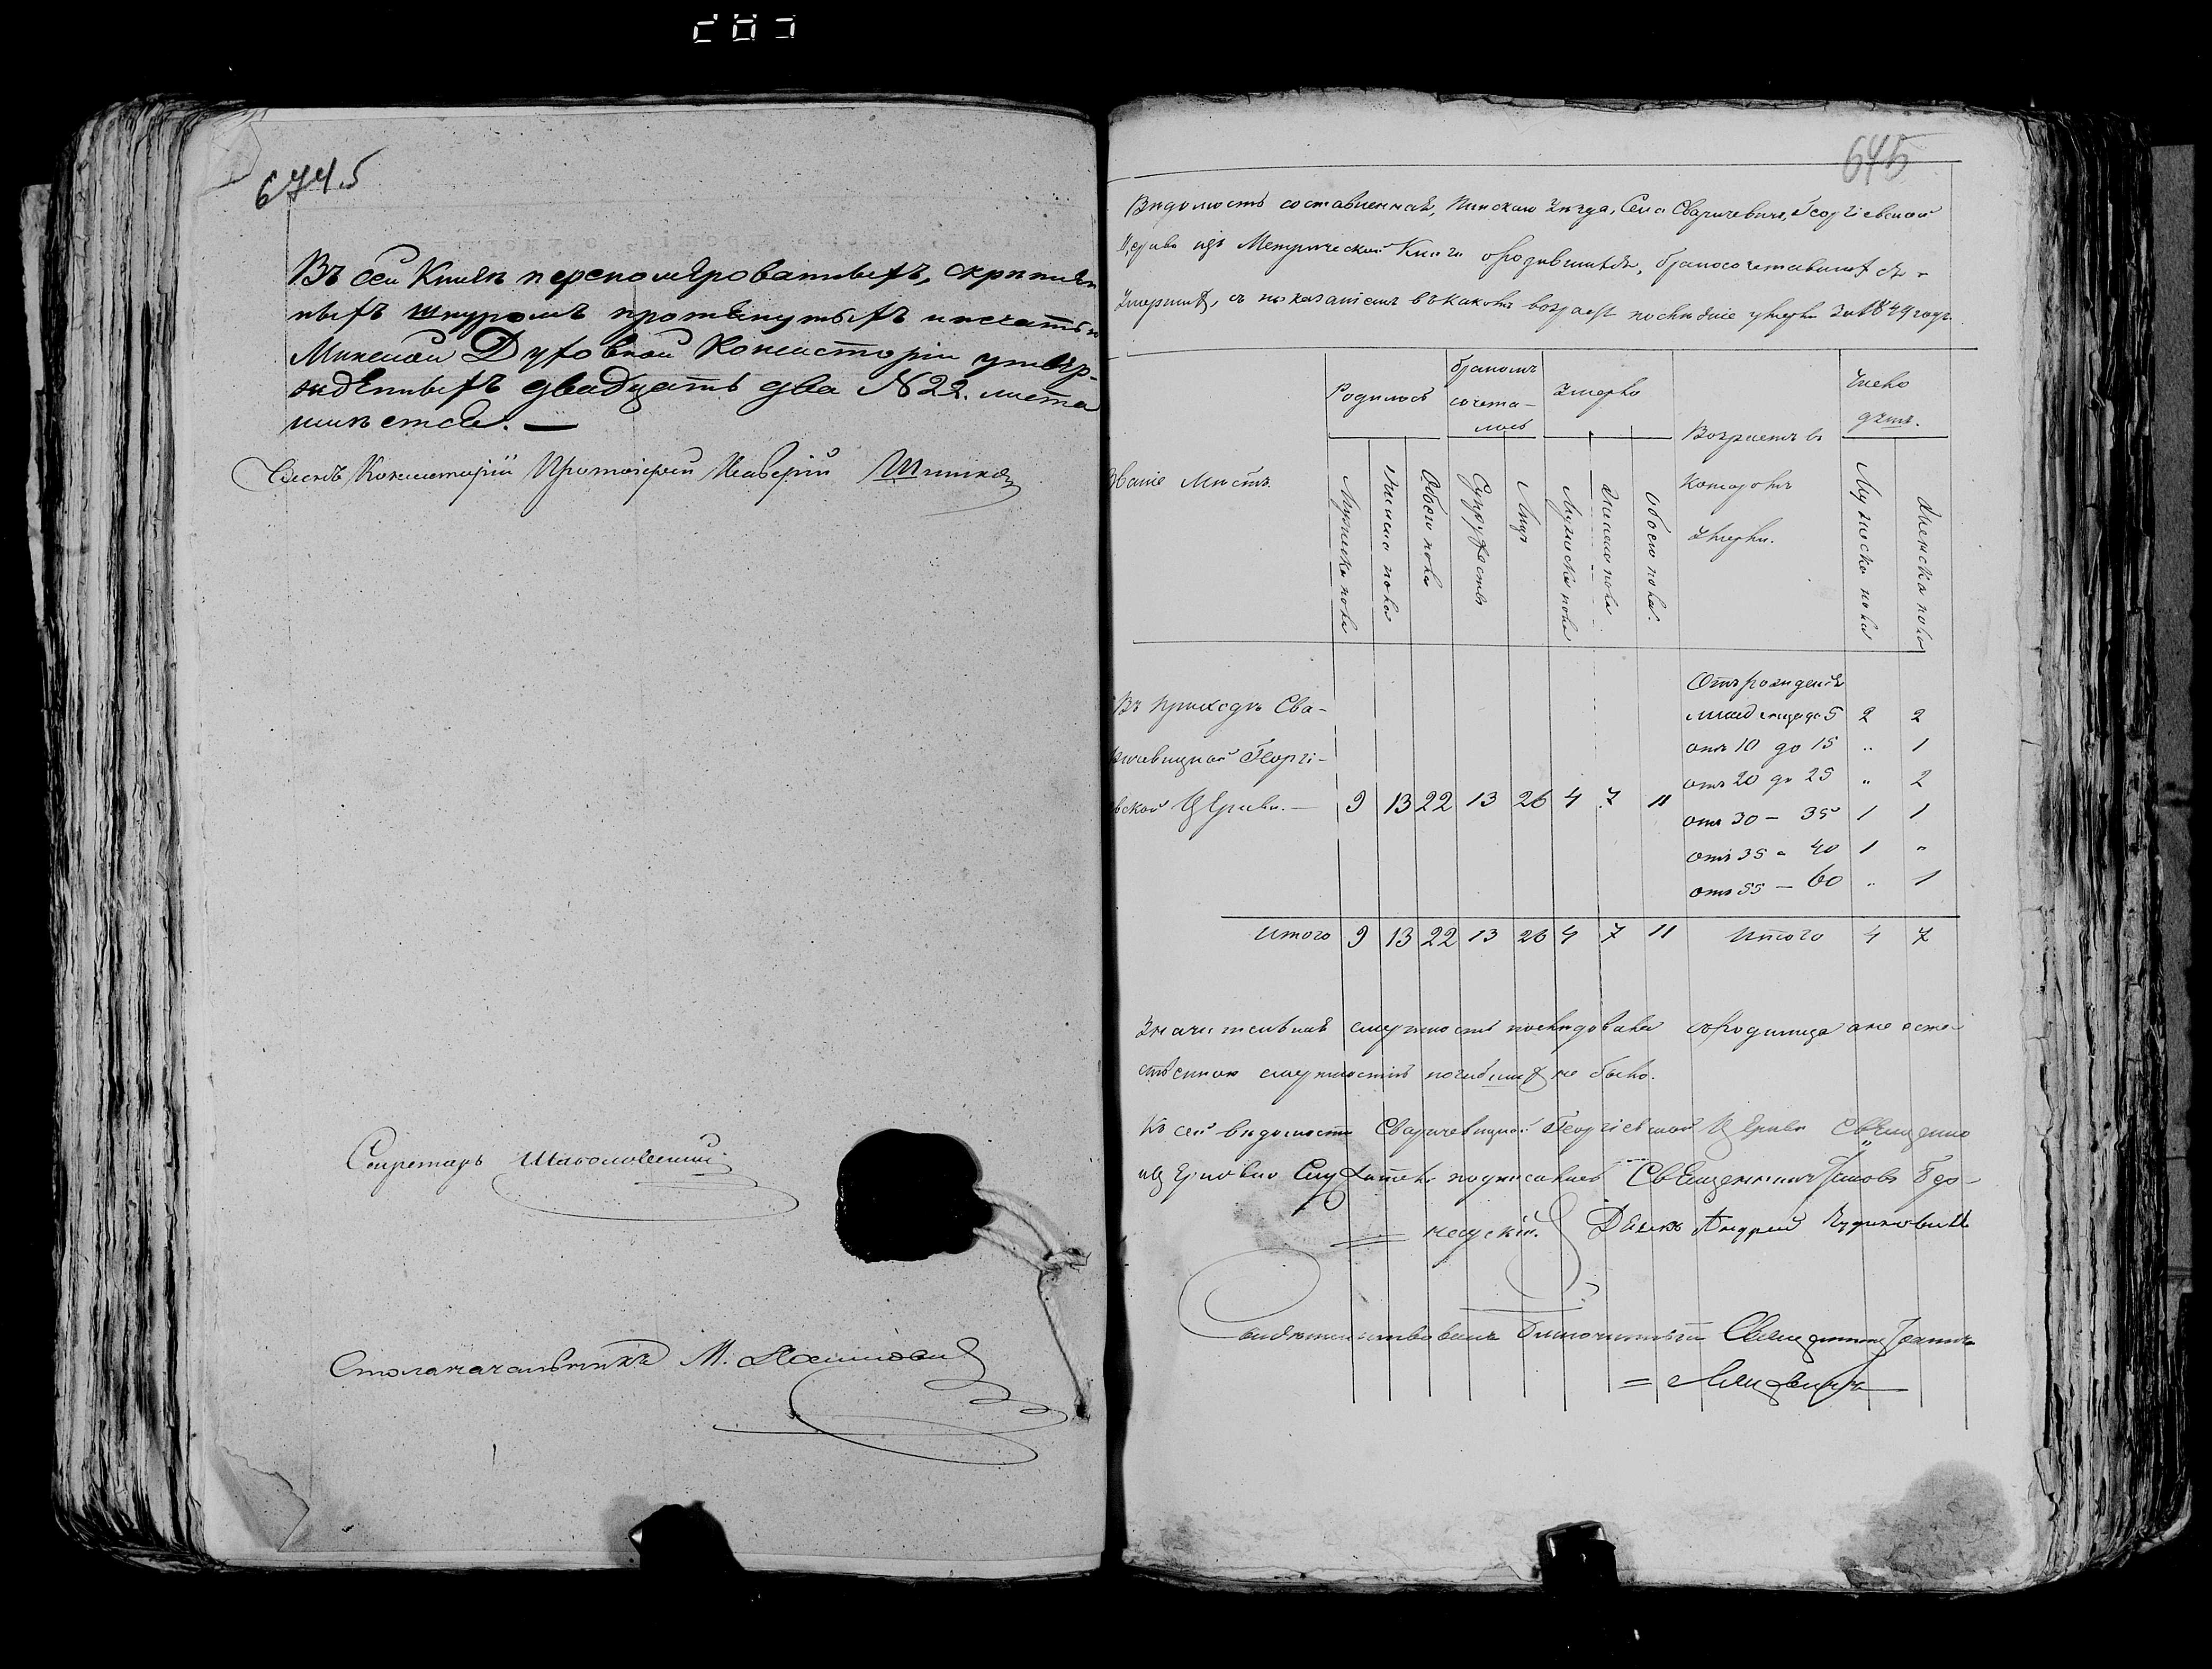 644.б
Въ сей Книгѣ перенумерованныхъ, скрѣплен
ныхъ шнуромъ протянутыхъ и печатью
Минской Духовной Консисторіи утвер-
жденныхъ двадцать два №22. листа
имѣется.—
Членъ Консисторіи Протоіерей
Секретарь
Столоначальникъ М.
645
Вѣдомость составленная, Пинскаго Уѣзда, Села Сваричевичь, Георгіевской
Церкви изъ Метрической Книги о родившихся, бракосочетавшихся и
Умершихъ, съ показаніемъ въ какомъ возрастѣ послѣдніе умерли за 1849 годъ.
Званіе Мѣстъ.
Родилось
Мужеска пола
Женска пола
Обоего пола
бракомъ
сочета-
лось
Супружествъ
Лицъ
Умерло
Мужеска пола
Женска пола
Обоего пола.
Возрастъ въ
Которомъ
Умерли.
Число
душъ.
Мужеска пола
Женска пола
Въ приходѣ Сва-
ричевицкой Георгі-
евской Церкви.— 9 13 22 13 26 4 7 11
Отъ рожденія
до 5 2 2
отъ 10 до 15 " 1
отъ 20 до 25 " 2
отъ 30 — 35 1 1
отъ 35 — 40 1 "
отъ 55 — 60 " 1
Итого 9 13 22 13 26 4 7 11 Итого 4 7
Значительная смертность послѣдовала
смертностію погибшихъ не было.
Къ сей вѣдомости Сваричевицкой Георгіевской Церкви Священно
и Церковно Служители подписались Священникъ Іаковъ
Дьякъ Андрей
Свидѣтельствовалъ Благочинный Священникъ Іоаннъ